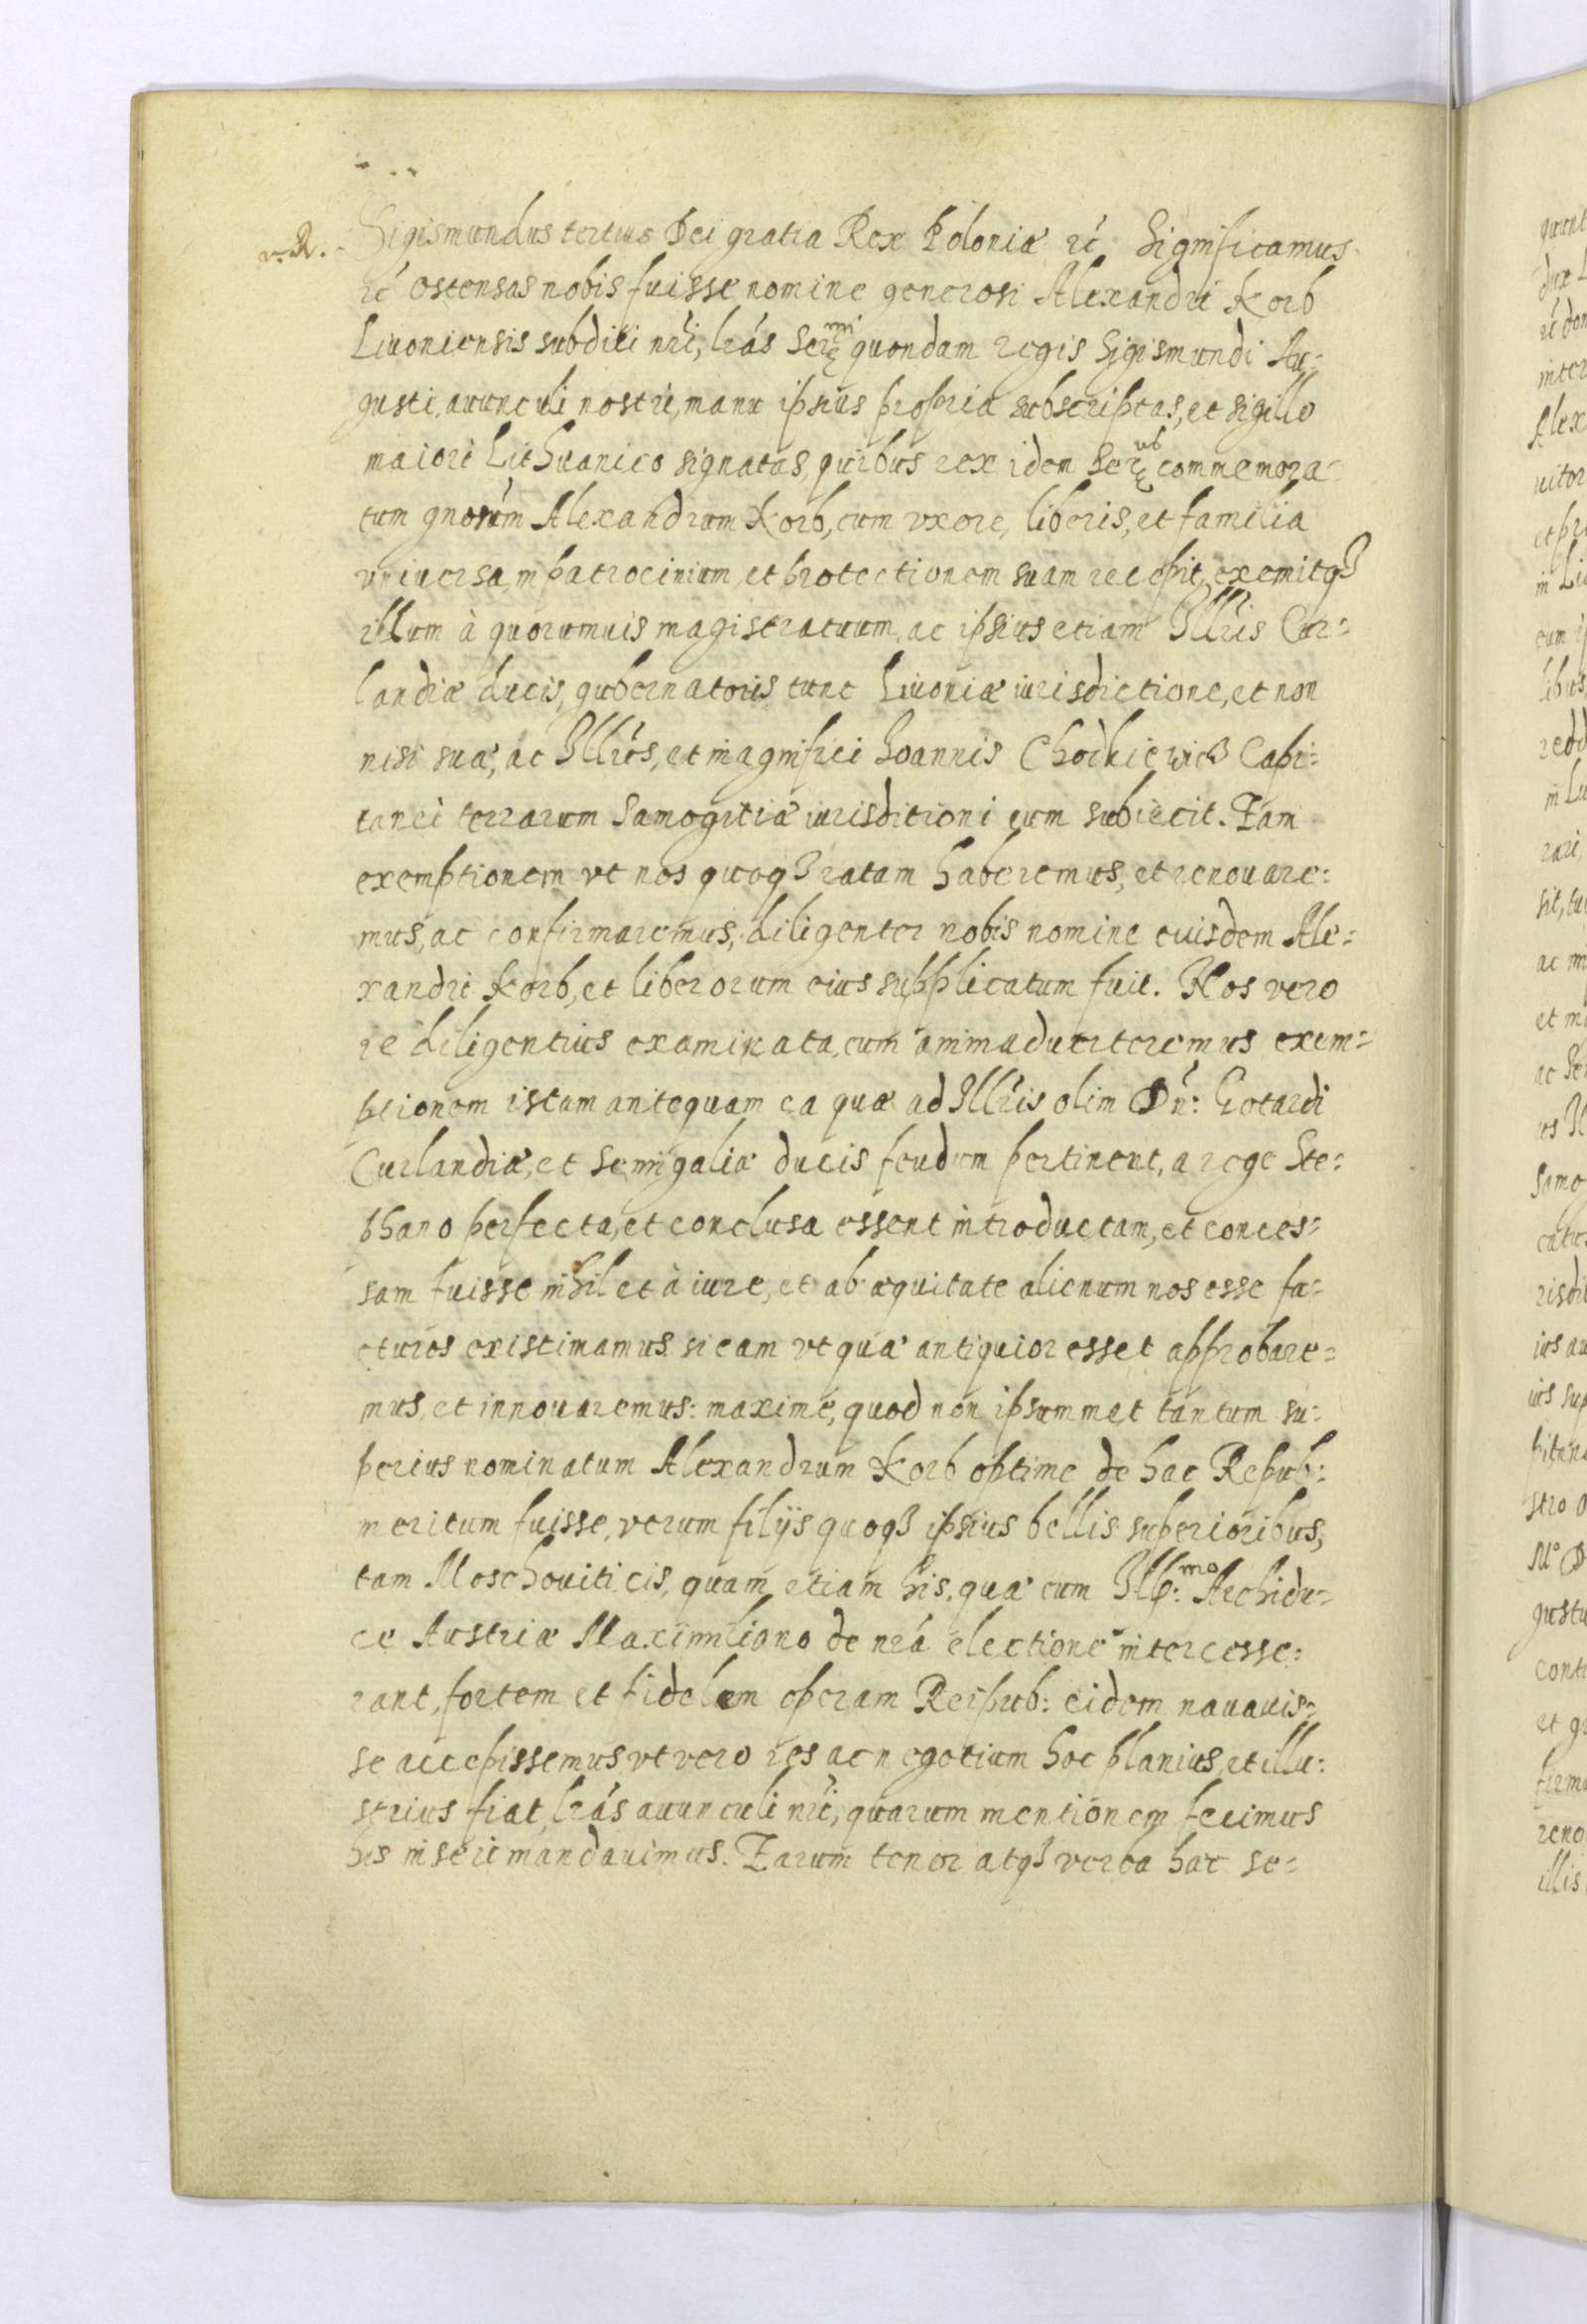 Sigismundus tertius Dei gratia Rex Poloniæ rc̃ Significamus
rc̃ ostensas nobis fuisse nomine generosi Alexandri Korb
Liuoniensis subditi nr̃i, lr̃ás Ser.mi quondam regis Sigismundi Au=
gusti, auunculi nostri, manu ipsius propria subscriptas, et sigillo
maiori Lithuanico signatas, quibus rex idem Ser.us commemora=
tum gnosũm Alexandrum Korb, cum vxore, liberis, et familia
vniuersa, in patrocinium, et protectionem suam recepit, exemitqȝ
illum à quorumuis magistratuum, ac ipsius etiam Illr̃is Cur=
landiæ ducis, gubernatoris tunc Liuoniæ iurisdictione, et non
nisi suæ, ac Illr̃is, et magnifici Ioannis Chodkiewicz Capi=
tanei terrarum Samogitiæ iurisditioni eum subiecit. Eam
exemptionem vt nos quoqȝ ratam haberemus, et renouare=
mus, ac confirmaremus, diligenter nobis nomine eiusdem Ale=
xandri Korb, et liberorum eius supplicatum fuit. Nos vero
re diligentius examinata, cum animaduerteremus exem=
ptionem istam antequam ea quæ ad Illr̃is olim Dñ: Gotardi
Curlandiæ, et Semigaliæ ducis feudum pertinent, a rege Ste=
phano perfecta, et conclusa essent introductam, et conces=
sam fuisse nihil et à iure, et ab æquitate alienum nos esse fa=
cturos existimamus si eam vt quæ antiquior esset approbare=
mus, et innouaremus: maximè, quod non ipsummet tantum su=
perius nominatum Alexandrum Korb optime de hac Repub:
meritum fuisse, verum filijs quoqȝ ipsius bellis superioribus,
tam Moschouiticis, quam etiam his, quæ cum Ill:mo Archidu=
ce Austriæ Maximiliano de nr̃á electione intercesse=
rant, fortem et fidelem operam Reipub: eidem nauauis=
se accepissemus vt vero res ac negotium hoc planius, et illu=
strius fiat, lr̃ás auunculi nr̃i, quarum mentionem fecimus
his inseri mandauimus. Earum tenor atqȝ verba hæc se=